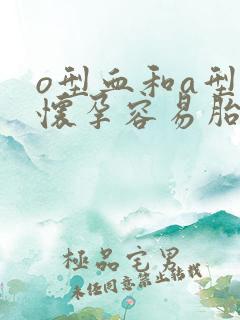 o型血和a型
怀孕容易胎
極品宅男
未经同意禁止转载